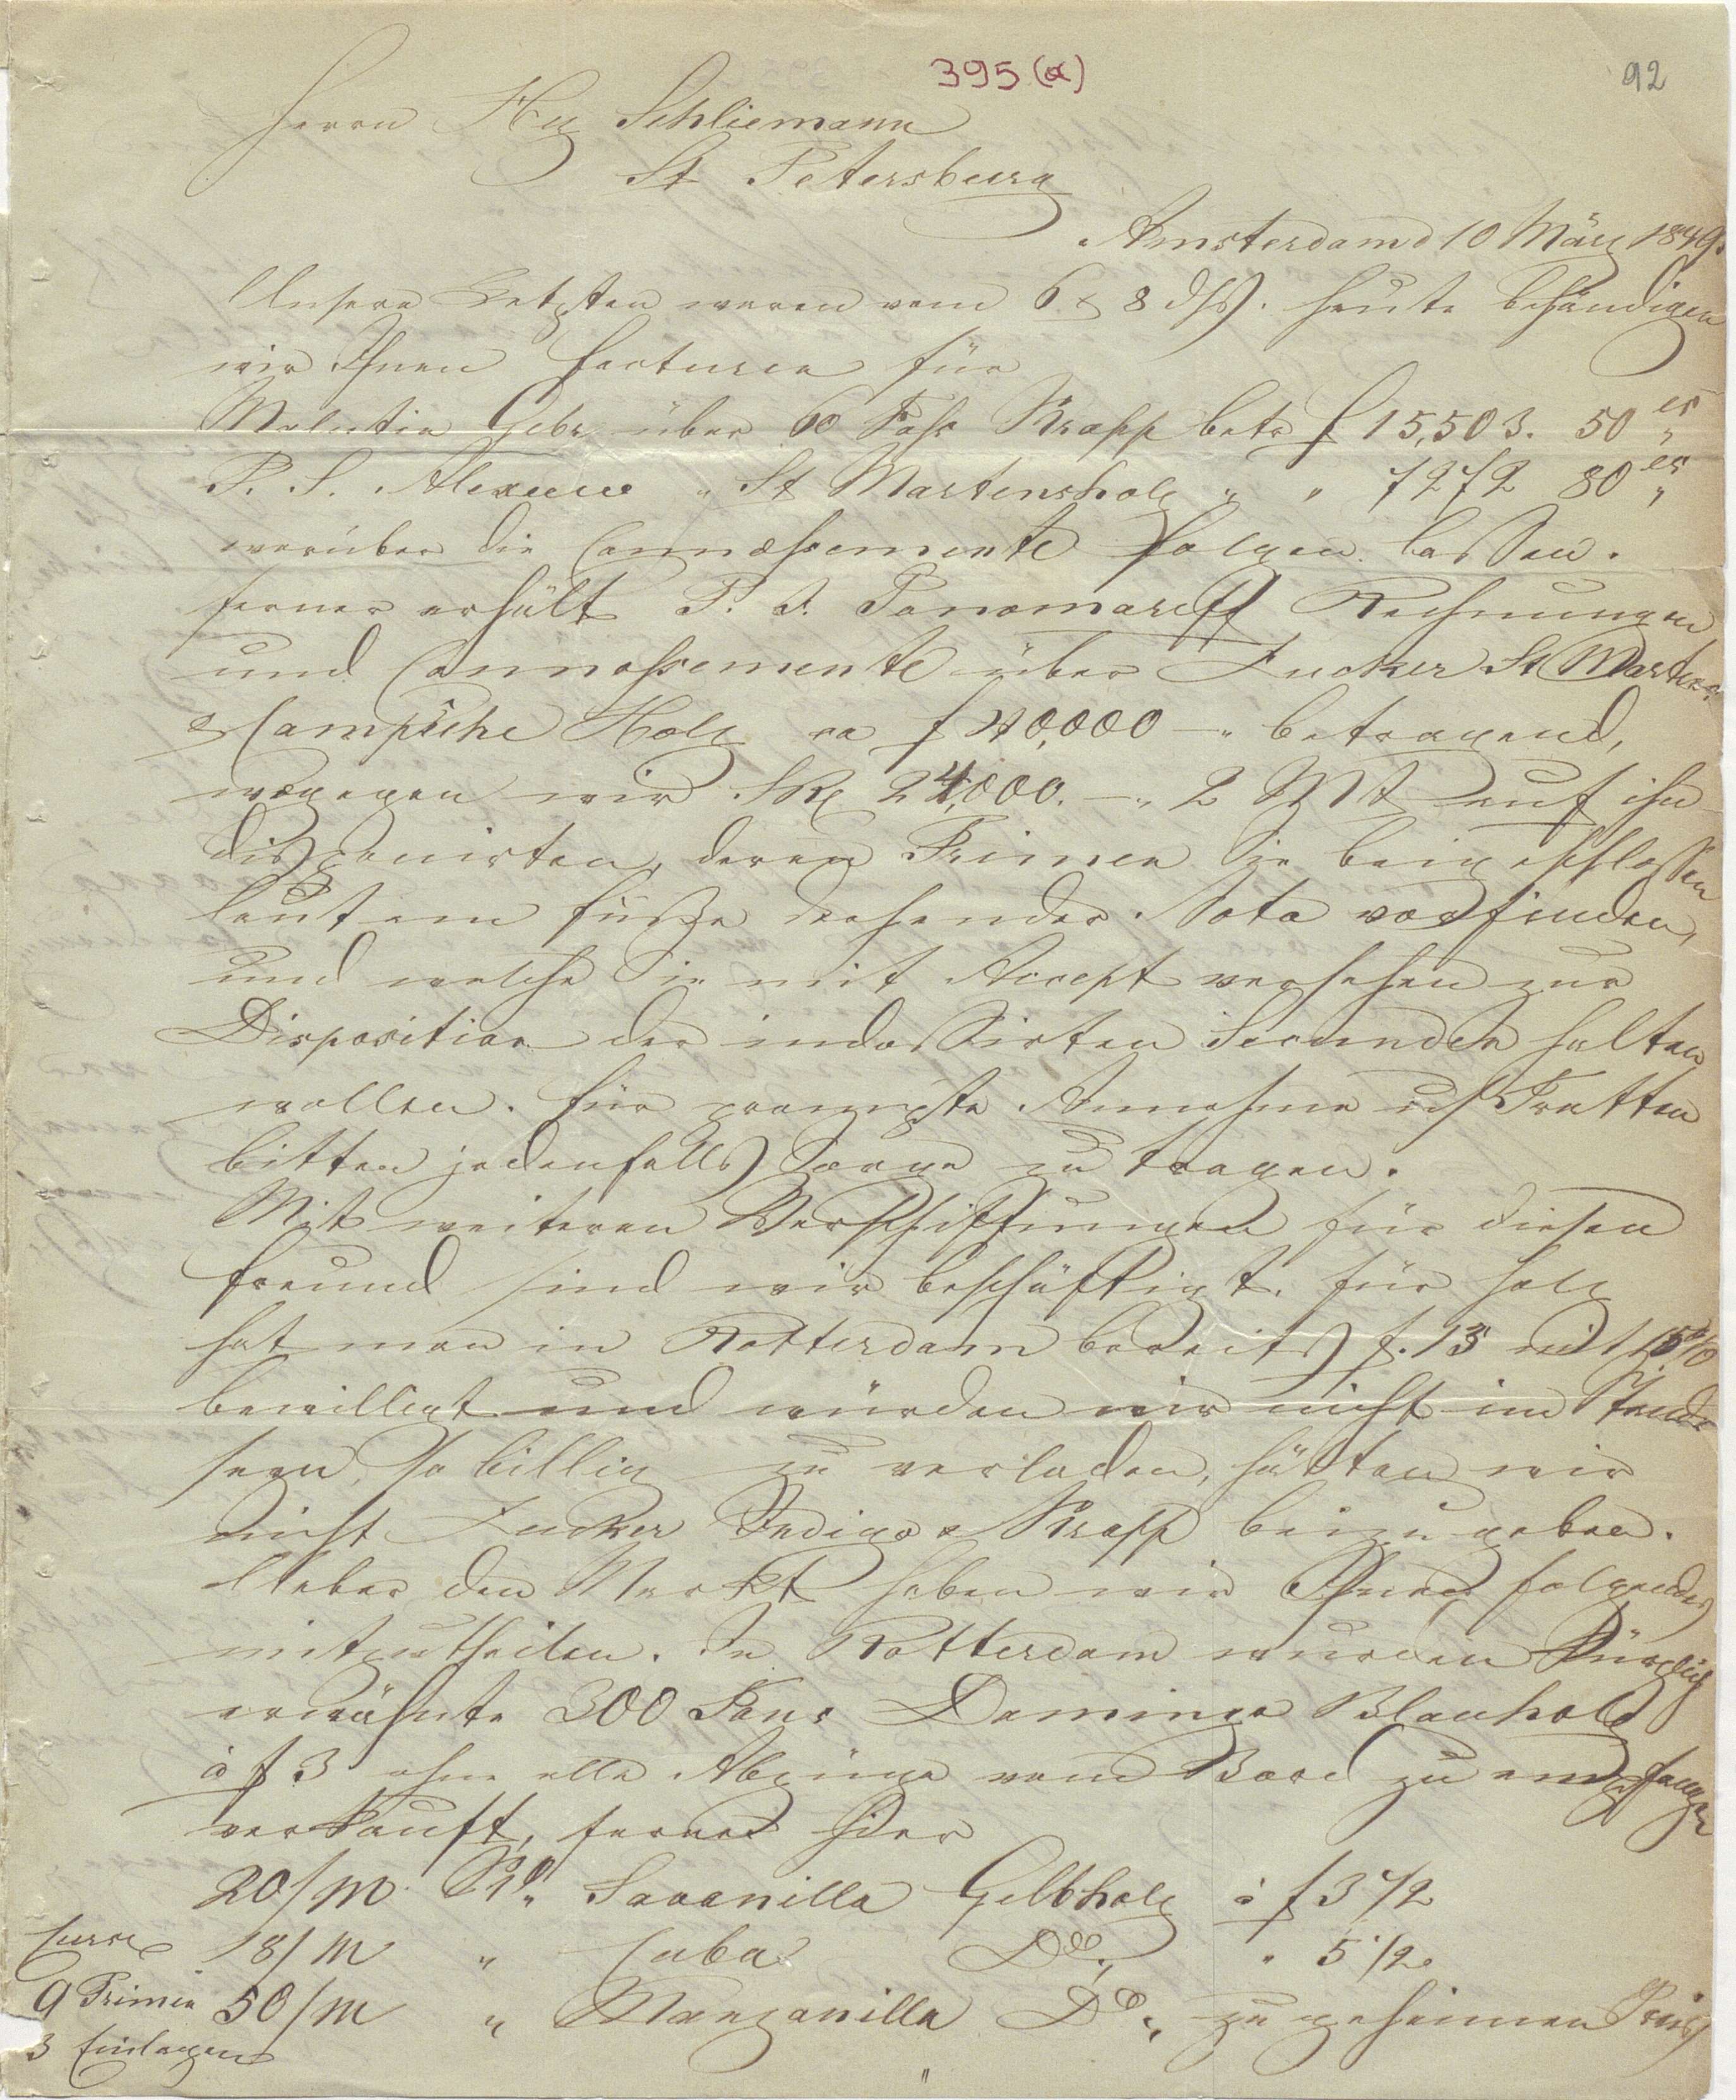 395 (a)
92
Herrn Hy Schliemann
St Petersburg
Amsterdam d 10 März 1849.
Unsere Letzten waren vom 6 & 8 dss. heute behändigen
wir Ihnen Facturen für
Malutin Gebr über 60 Fass Krapp betr f 15,503. 50 cs
P. S. Alexeeo " St Martensholz " " 7272 80 cs "
worüber die Connossemente folgen lassen.
ferner erhält P. A. Ponomareff Rechnungen
und Connossemente über Zucker St Martens
& Campêche Holz ca f 40,000 –" betragend,
wogegen wir SRo 24,000. –" 2 Mt auf ihn
disponirten, deren Primen Sie beigeschlossen
laut am Fusse stehender Nota vorfinden,
und welche Sie mit Accept versehen zur
Disposition der indossirten Secunden halten
wollen. Für prompte Annahme uns Tratten
bitten jedenfalls Sorge zu tragen.
Mit weiteren Verschiffungen für diesen
Freund sind wir beschäftigt. für Holz
hat man in Rotterdam bereits f. 13 mit 15%
bewilligt und würden wir nicht im Stande
seyn, so billig zu verladen, hätten wir
nicht Zucker Indigo & Krapp beizugeben.
Ueber den Markt haben wir Ihnen folgendes
mitzutheilen. In Rotterdam wurden kürzlich
erwähnte 300 Tons Domingo Blauholz
à f 3 ohne alle Abzüge vom Bord zu empfangen
verkauft, ferner hier
20/m Po " Savanilla Gelbholz à f 3 1/2
18/m " Cuba Do " " 5 1/2
50/m " Manzanilla Do " zu geheimen Preis
Curse
9 Primen
3 Einlagen
"